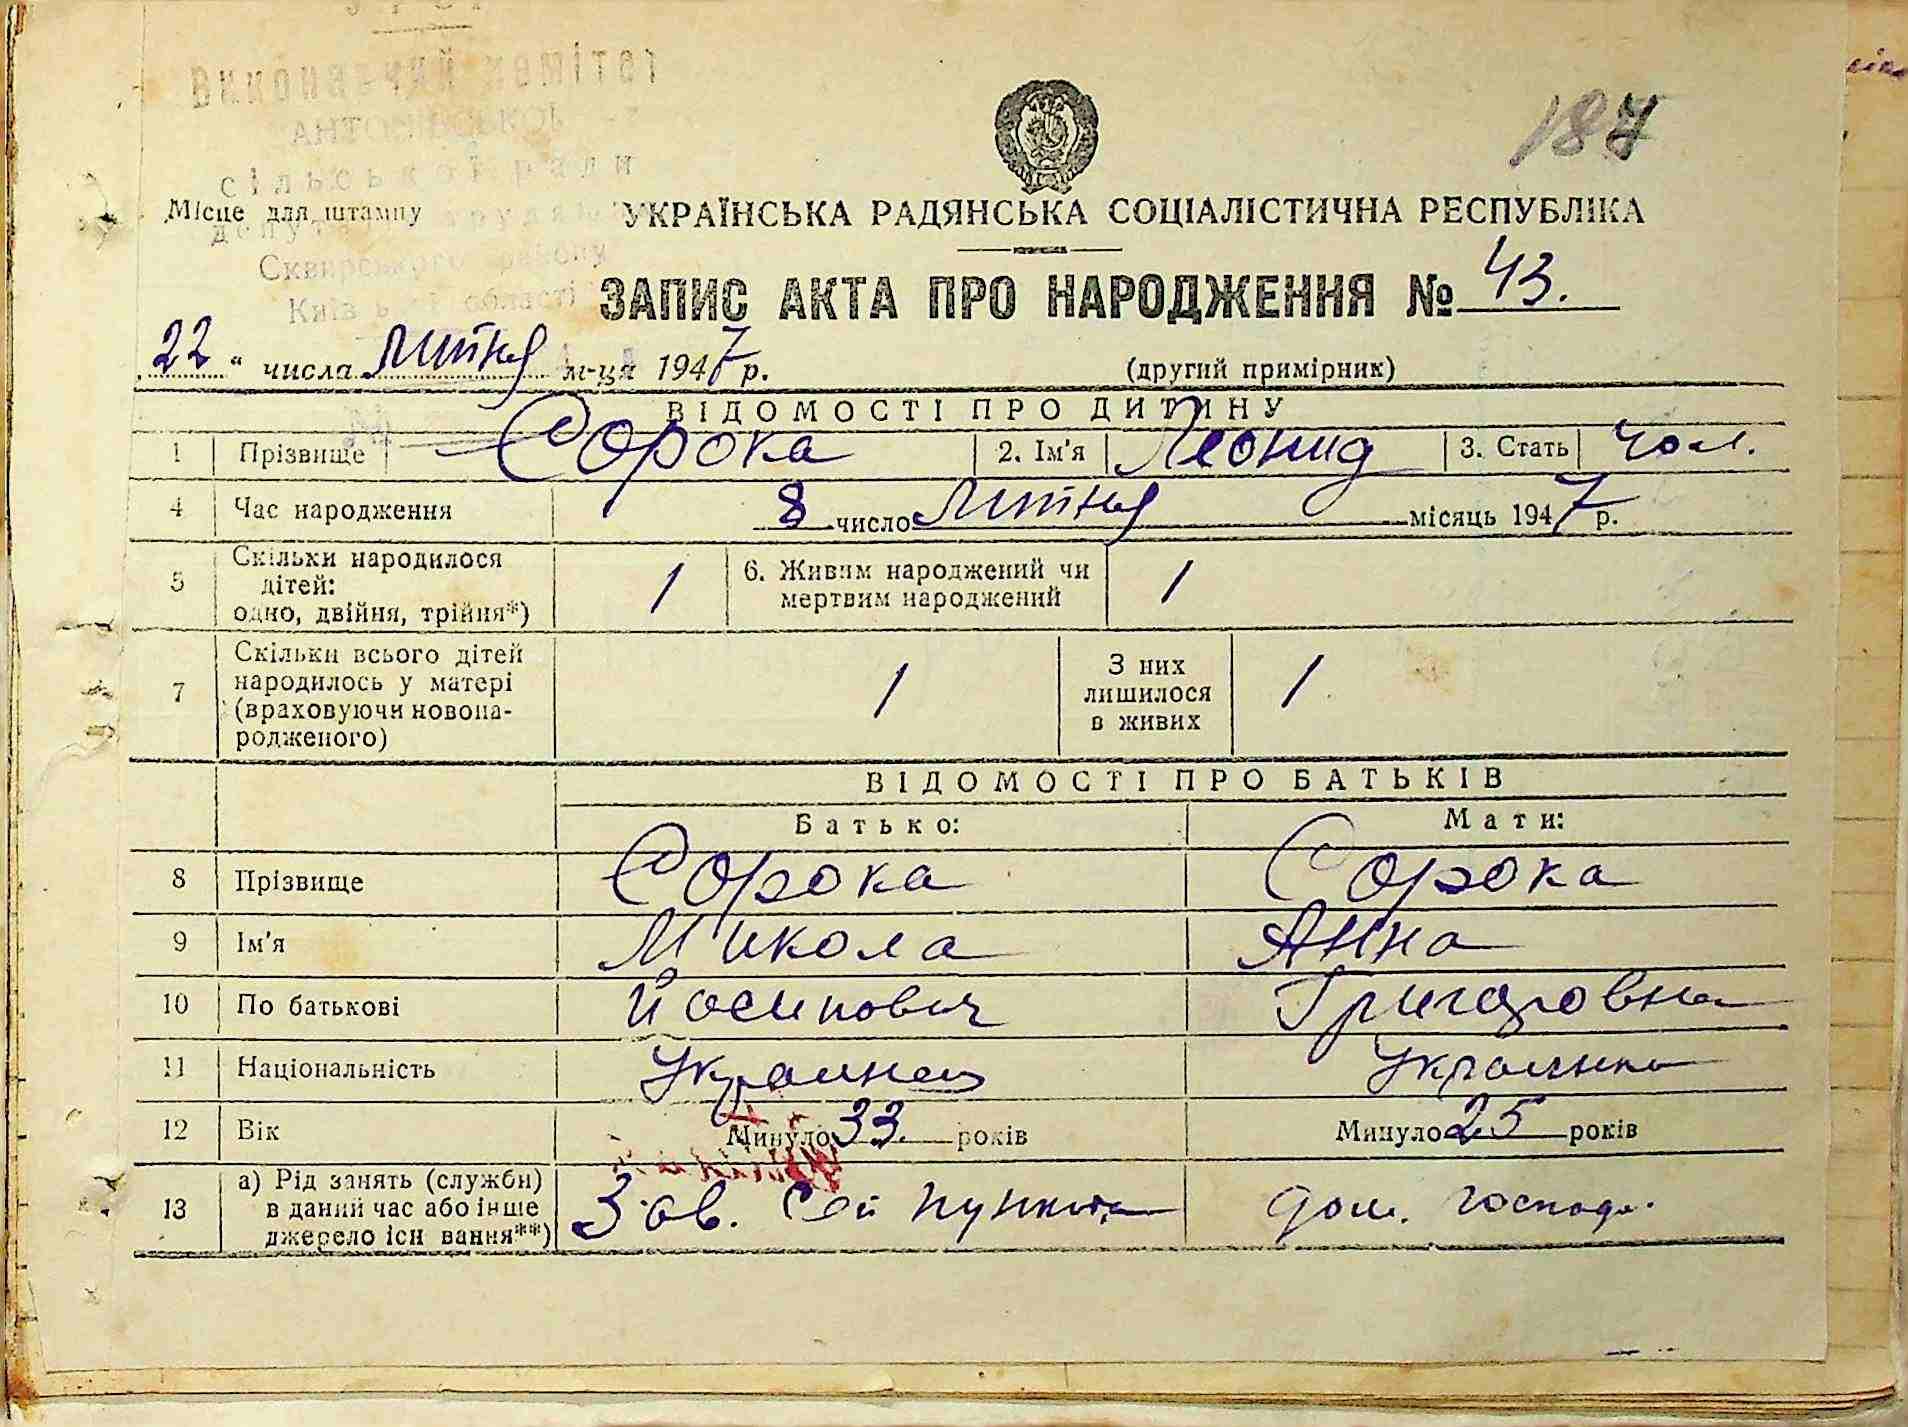 УРСР
Виконавчий комітет
АНТОНІВСЬКОЇ
сільської ради
депутатів трудящих
Сквирського району
Київської області
187
Місце для штампу
УКРАЇНСЬКА РАДЯНСЬКА СОЦІАЛІСТИЧНА РЕСПУБЛІКА
ЗАПИС АКТА ПРО НАРОДЖЕННЯ № 43.
„22“ числа Липня м-ця 1947 р. (другий примірник)
ВІДОМОСТІ ПРО ДИТИНУ
1 Прізвище Сорока 2. Ім'я Леонид 3. Стать чол.
4 Час народження 8 число Липня місяць 1947 р.
5 Скільки народилося дітей: одно, двійня, трійня*) 1 6. Живим народжений чи мертвим народжений 1
7 Скільки всього дітей народилось у матері (враховуючи новонародженого) 1 З них лишилося в живих 1
ВІДОМОСТІ ПРО БАТЬКІВ
Батько: Мати:
8 Прізвище Сорока Сорока
9 Ім'я Микола Анна
10 По батькові Йосипович Григоровна
11 Національність Украинец Украинка
12 Вік Минуло 33 років Минуло 25 років
13 а) Рід занять (служби) в даний час або інше джерело існ вання**) Зав. пункта дом. господ.